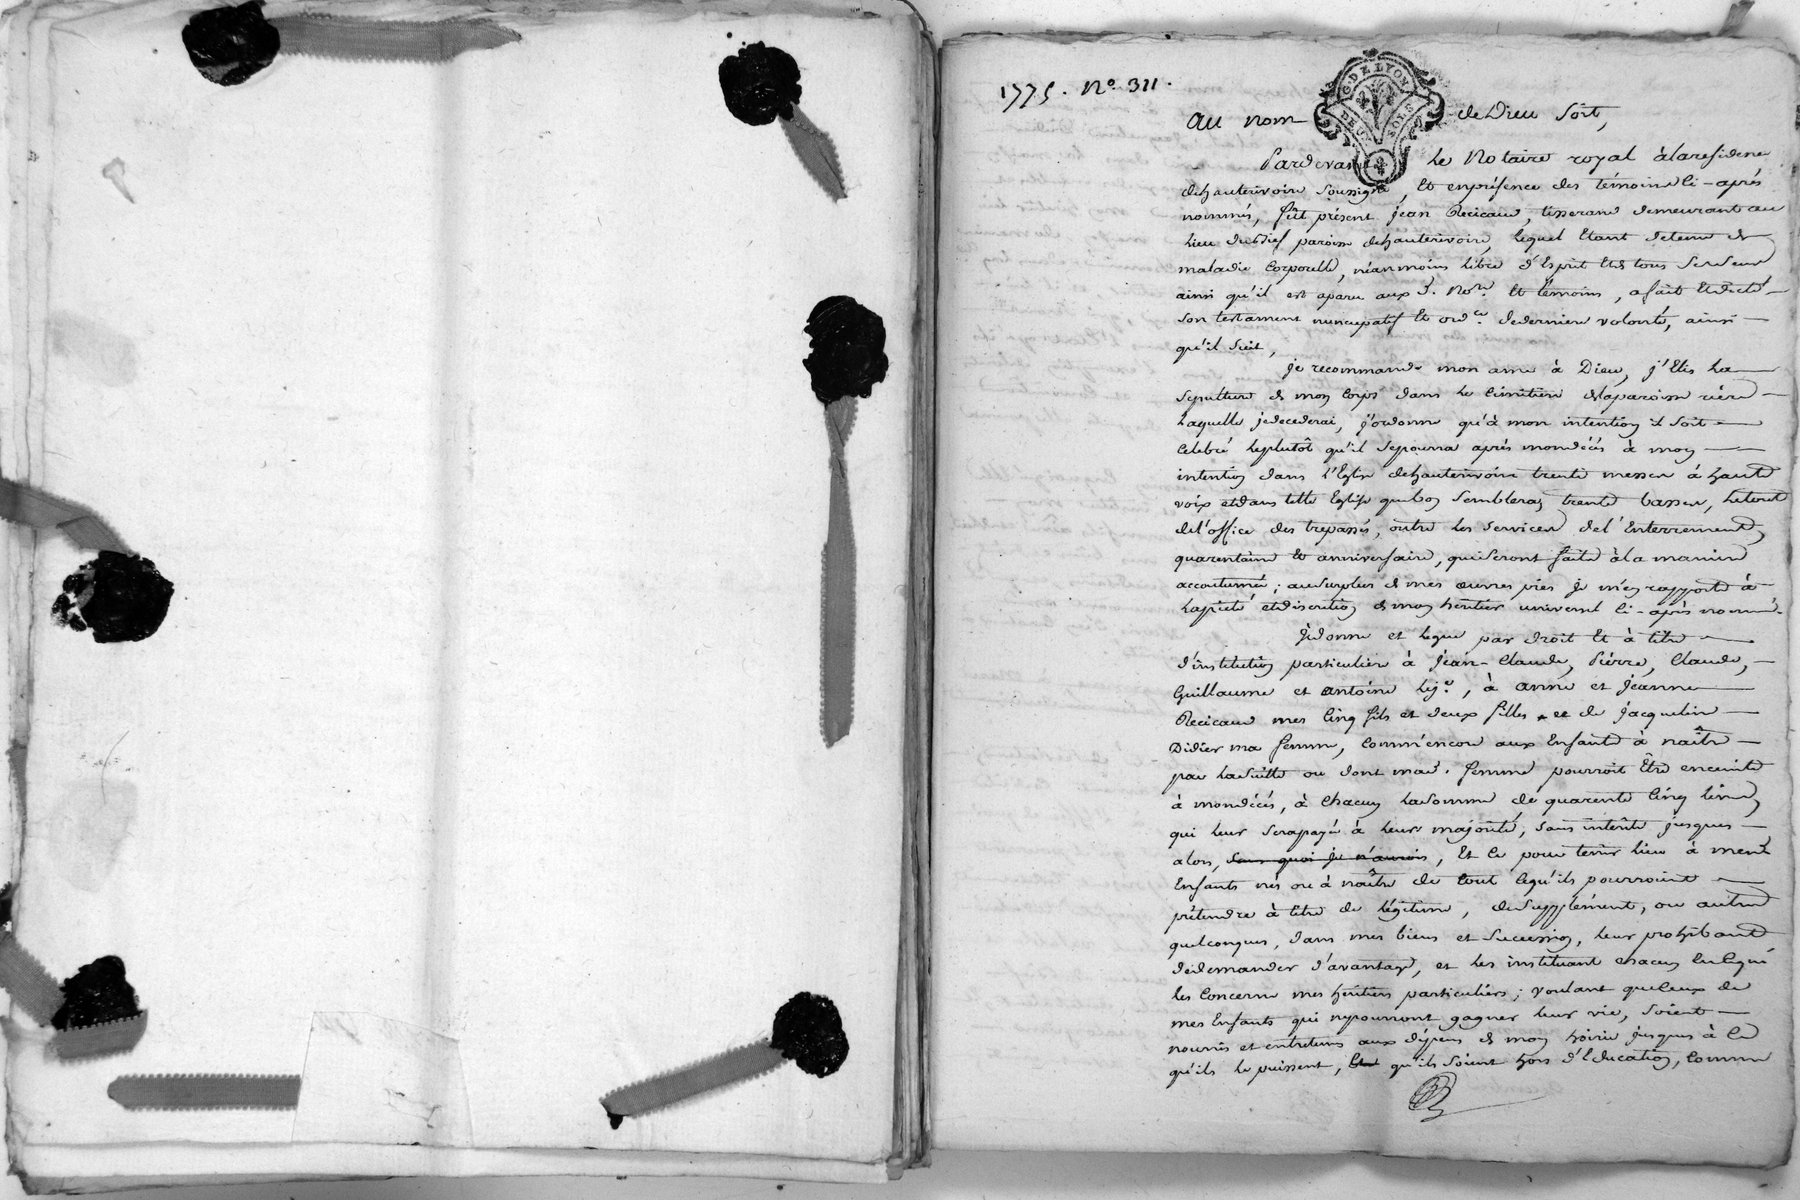 1775. No. 311.
G. DE LYON
DEUX SOLS
au nom de Dieu Soit,
Pardevant Le Notaire royal àlaresidence
dehauterivoire Soussigné, Et enprésence des témoins Ci-après
nommés, fut présent Jean Recicaud, tisserand demeurant au
Lieu du paroisse dehauterivoire, Lequel Etant detenu de
maladie Corporelle, néanmoins Libre d'Esprit Et de tous Ses Sens
ainsi qu'il est aparu aux d. Nore. Et témoins, afait Et dicté
Son testament nuncupatif Et ord.ce dederniere volonté, ainsi
qu'il Suit,
je recommande mon ame à Dieu, j'Elis La
Sepulture de mon Corps dans Le Cimitiere delaparoisse riere
Laquelle jedecederai, j'ordonne qu'à mon intention il Soit
Celebré Leplutôt qu'il Sepourra après mondécés à mon
intention dans l'Eglise dehauterivoire trente messes à haute
voix etdans telle Eglise quebon Semblera, trente basses, Letout
del'office des trepassés, outre Les Services de l'Enterrement,
quarentaine Et anniversaire, quiseront faits àla maniere
accoutumée; ausurplus de mes œuvres pies je m'en rapporte à
Lapieté etdiscretion de mon héritier universel Ci-après nommé.
Jedonne et Legue par droit Et à titre
d'institution particuliere à Jean-Claude, Pierre, Claude,
Guillaume et antoine Leje., à anne et Jeanne
Recicaud mes Cinq fils et deux filles et de Jacqueline
Didier ma femme, Comm'encore aux Enfants à naître
par LaSuitte ou dont mad. femme pourroit Être enceinte
à mondécés, à Chacun Lasomme de quarente Cinq Livres,
qui leur Serapayée à Leur majorité, Sans interêts jusques
alors, sans quoi je n'aurois, Et Ce pour tenir Lieu à mesd.
Enfants nés ou à naître de tout Cequ'ils pourroient
prétendre à titre de légitime, deSupplément, ou autres
quelconques, dans mes biens et Succession, Leur prohibant
dedemander d'avantage, et Les instituant chacun EnCequi
Les Concerne mes héritiers particuliers; voulant queCeux de
mes Enfants qui nepourront gagner Leur vie, Soient
nourris et entretenus aux dépens de mon hoirie jusques à Ce
qu'ils Le puissent, Et qu'ils Soient hors d'Education, Comme